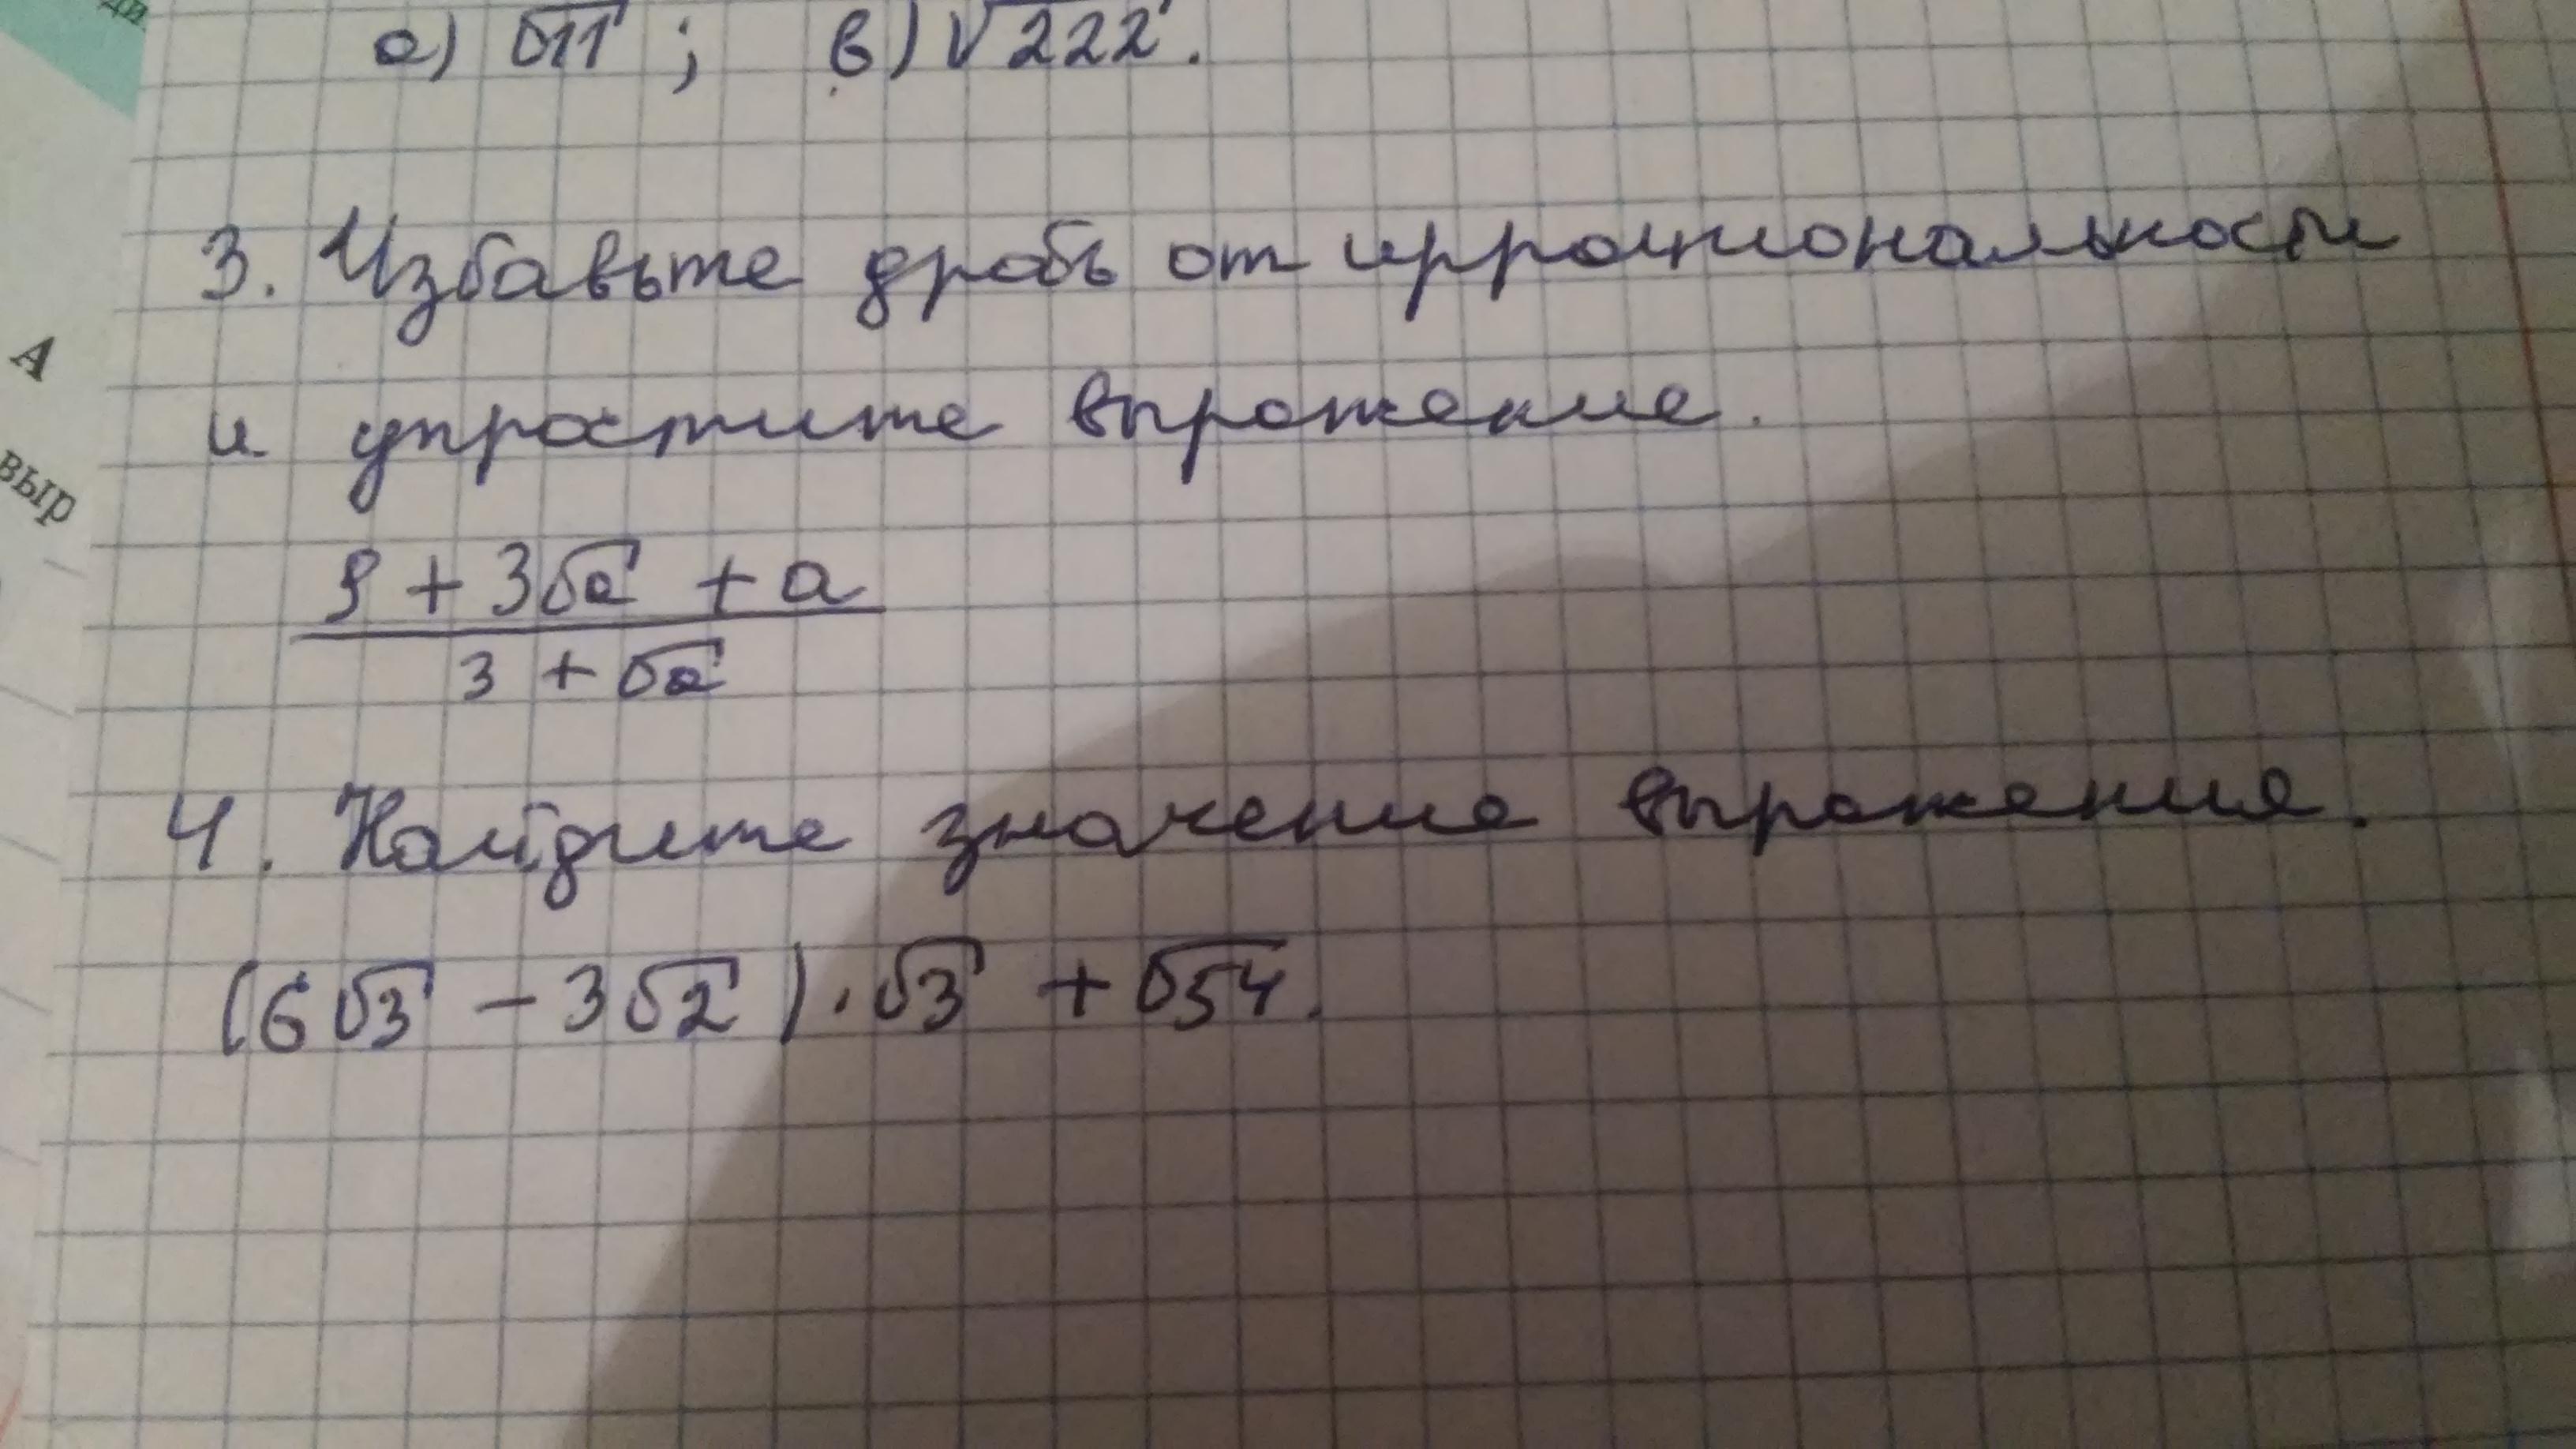 а) √11 ; в) √222.
3. Избавьте дробь от иррациональности
и упростите выражение.
9 + 3√a + a
3 + √a
4. Найдите значение выражения.
(6√3 - 3√2) · √3 + √54.
А
выр